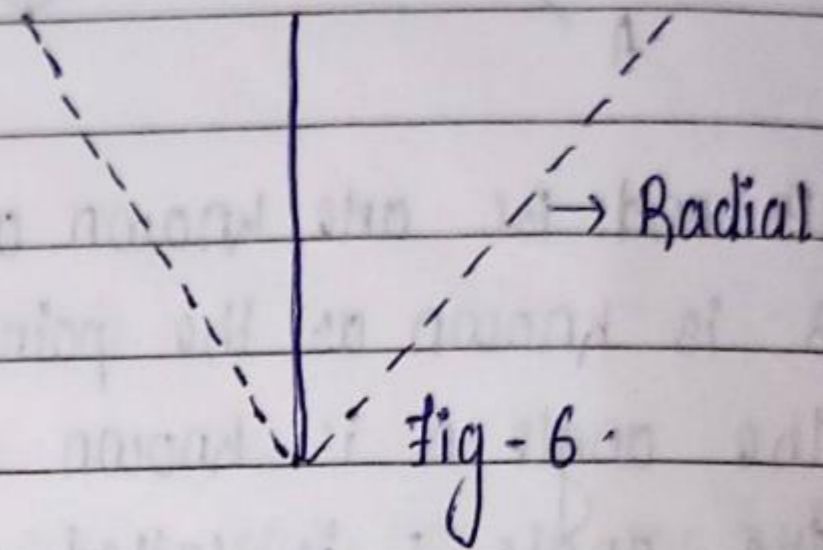 → Radial
Fig - 6.